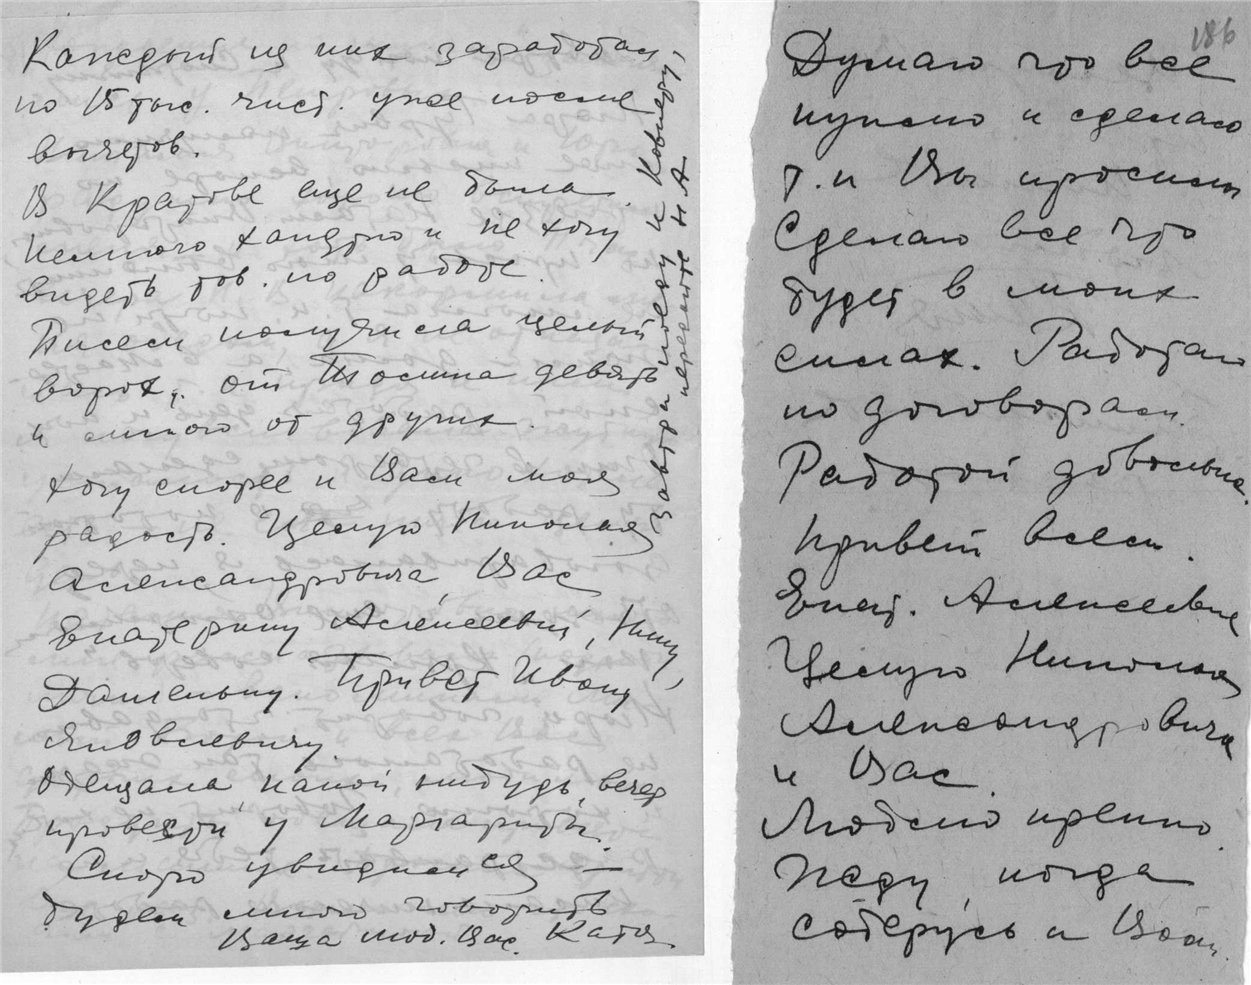 Каждый из них заработал
по 15 тыс. чист. уже после
вычетов.
В Кратове еще не была.
Немного хандрю и не хочу
видеть тов. по работе.
Писем получила целый
ворох, от Толина девять
и много от других.
Хочу скорее к Вам моя
радость. Целую Николая
Александровича, Вас
Екатерину Алексеевну, Нину,
Дашеньку. Привет Ивану
Яковлевичу.
Обещала какой нибудь вечер
провести у Маргариты.
Скоро увидимся —
будем много говорить
Ваша люб. Вас. Катя
Завтра поеду к
передайте Н А
186
Думаю что все
нужно и сделаю
т. к Вы просили
Сделаю все что
будет в моих
силах. Работаю
по договорам.
Работой довольна.
Привет всем.
Екат. Алексеевне
Целую Николая
Александровича
и Вас
Люблю крепко.
Жду, когда
соберусь к Вам.